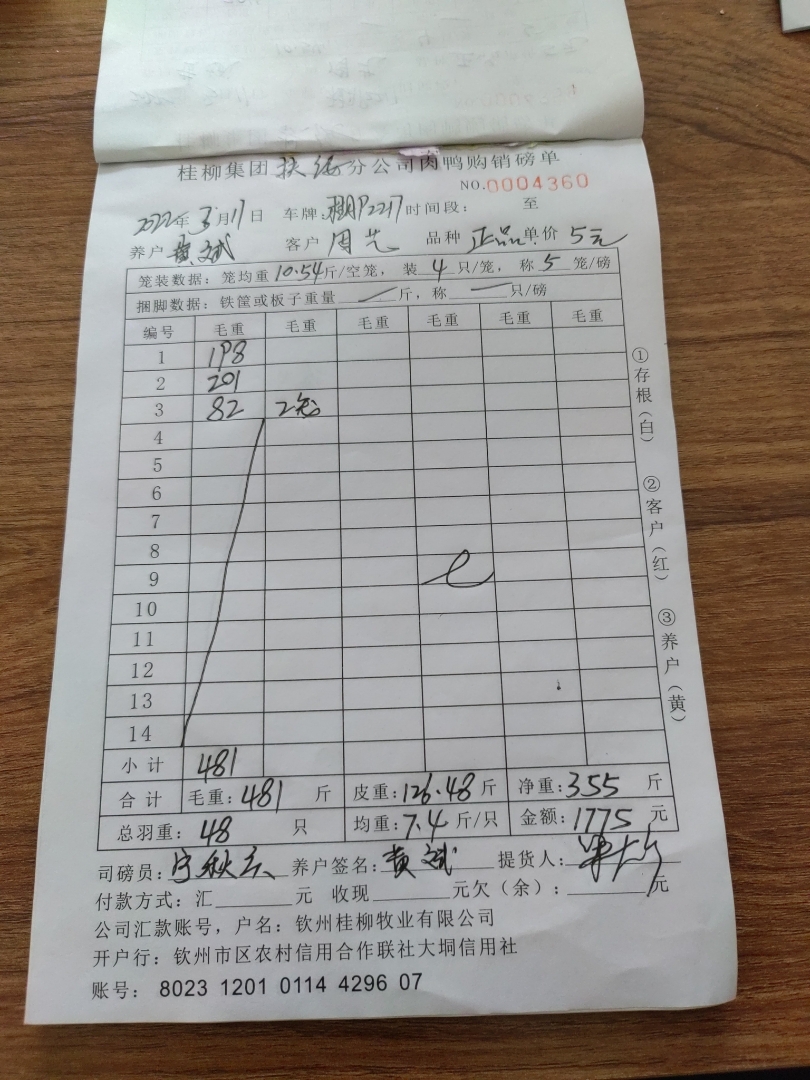 桂柳集团扶绥分公司肉鸭购销磅单
NO.0004360
2022年3月11日 车牌: 2217 时间段: 至
养户 黄斌 客户 周艺 品种 正品 单价 5元
笼装数据: 笼均重10.54斤/空笼, 装4只/笼, 称5笼/磅
捆脚数据: 铁筐或板子重量 / 斤, 称 一 只/磅
编号 毛重 毛重 毛重 毛重 毛重 毛重
1 198
2 201
3 82 2笼
4
5
6
7
8
9
10
11
12
13
14
小计 481
合计 毛重:481斤 皮重:126.48斤 净重:355斤
总羽重: 48 只 均重:7.4斤/只 金额:1775元
司磅员: 养户签名: 黄斌 提货人:
付款方式: 汇 元 收现 元欠(余): 元
公司汇款账号, 户名: 钦州桂柳牧业有限公司
开户行: 钦州市区农村信用合作联社大垌信用社
账号: 8023 1201 0114 4296 07
①存根(白)
②客户(红)
③养户(黄)